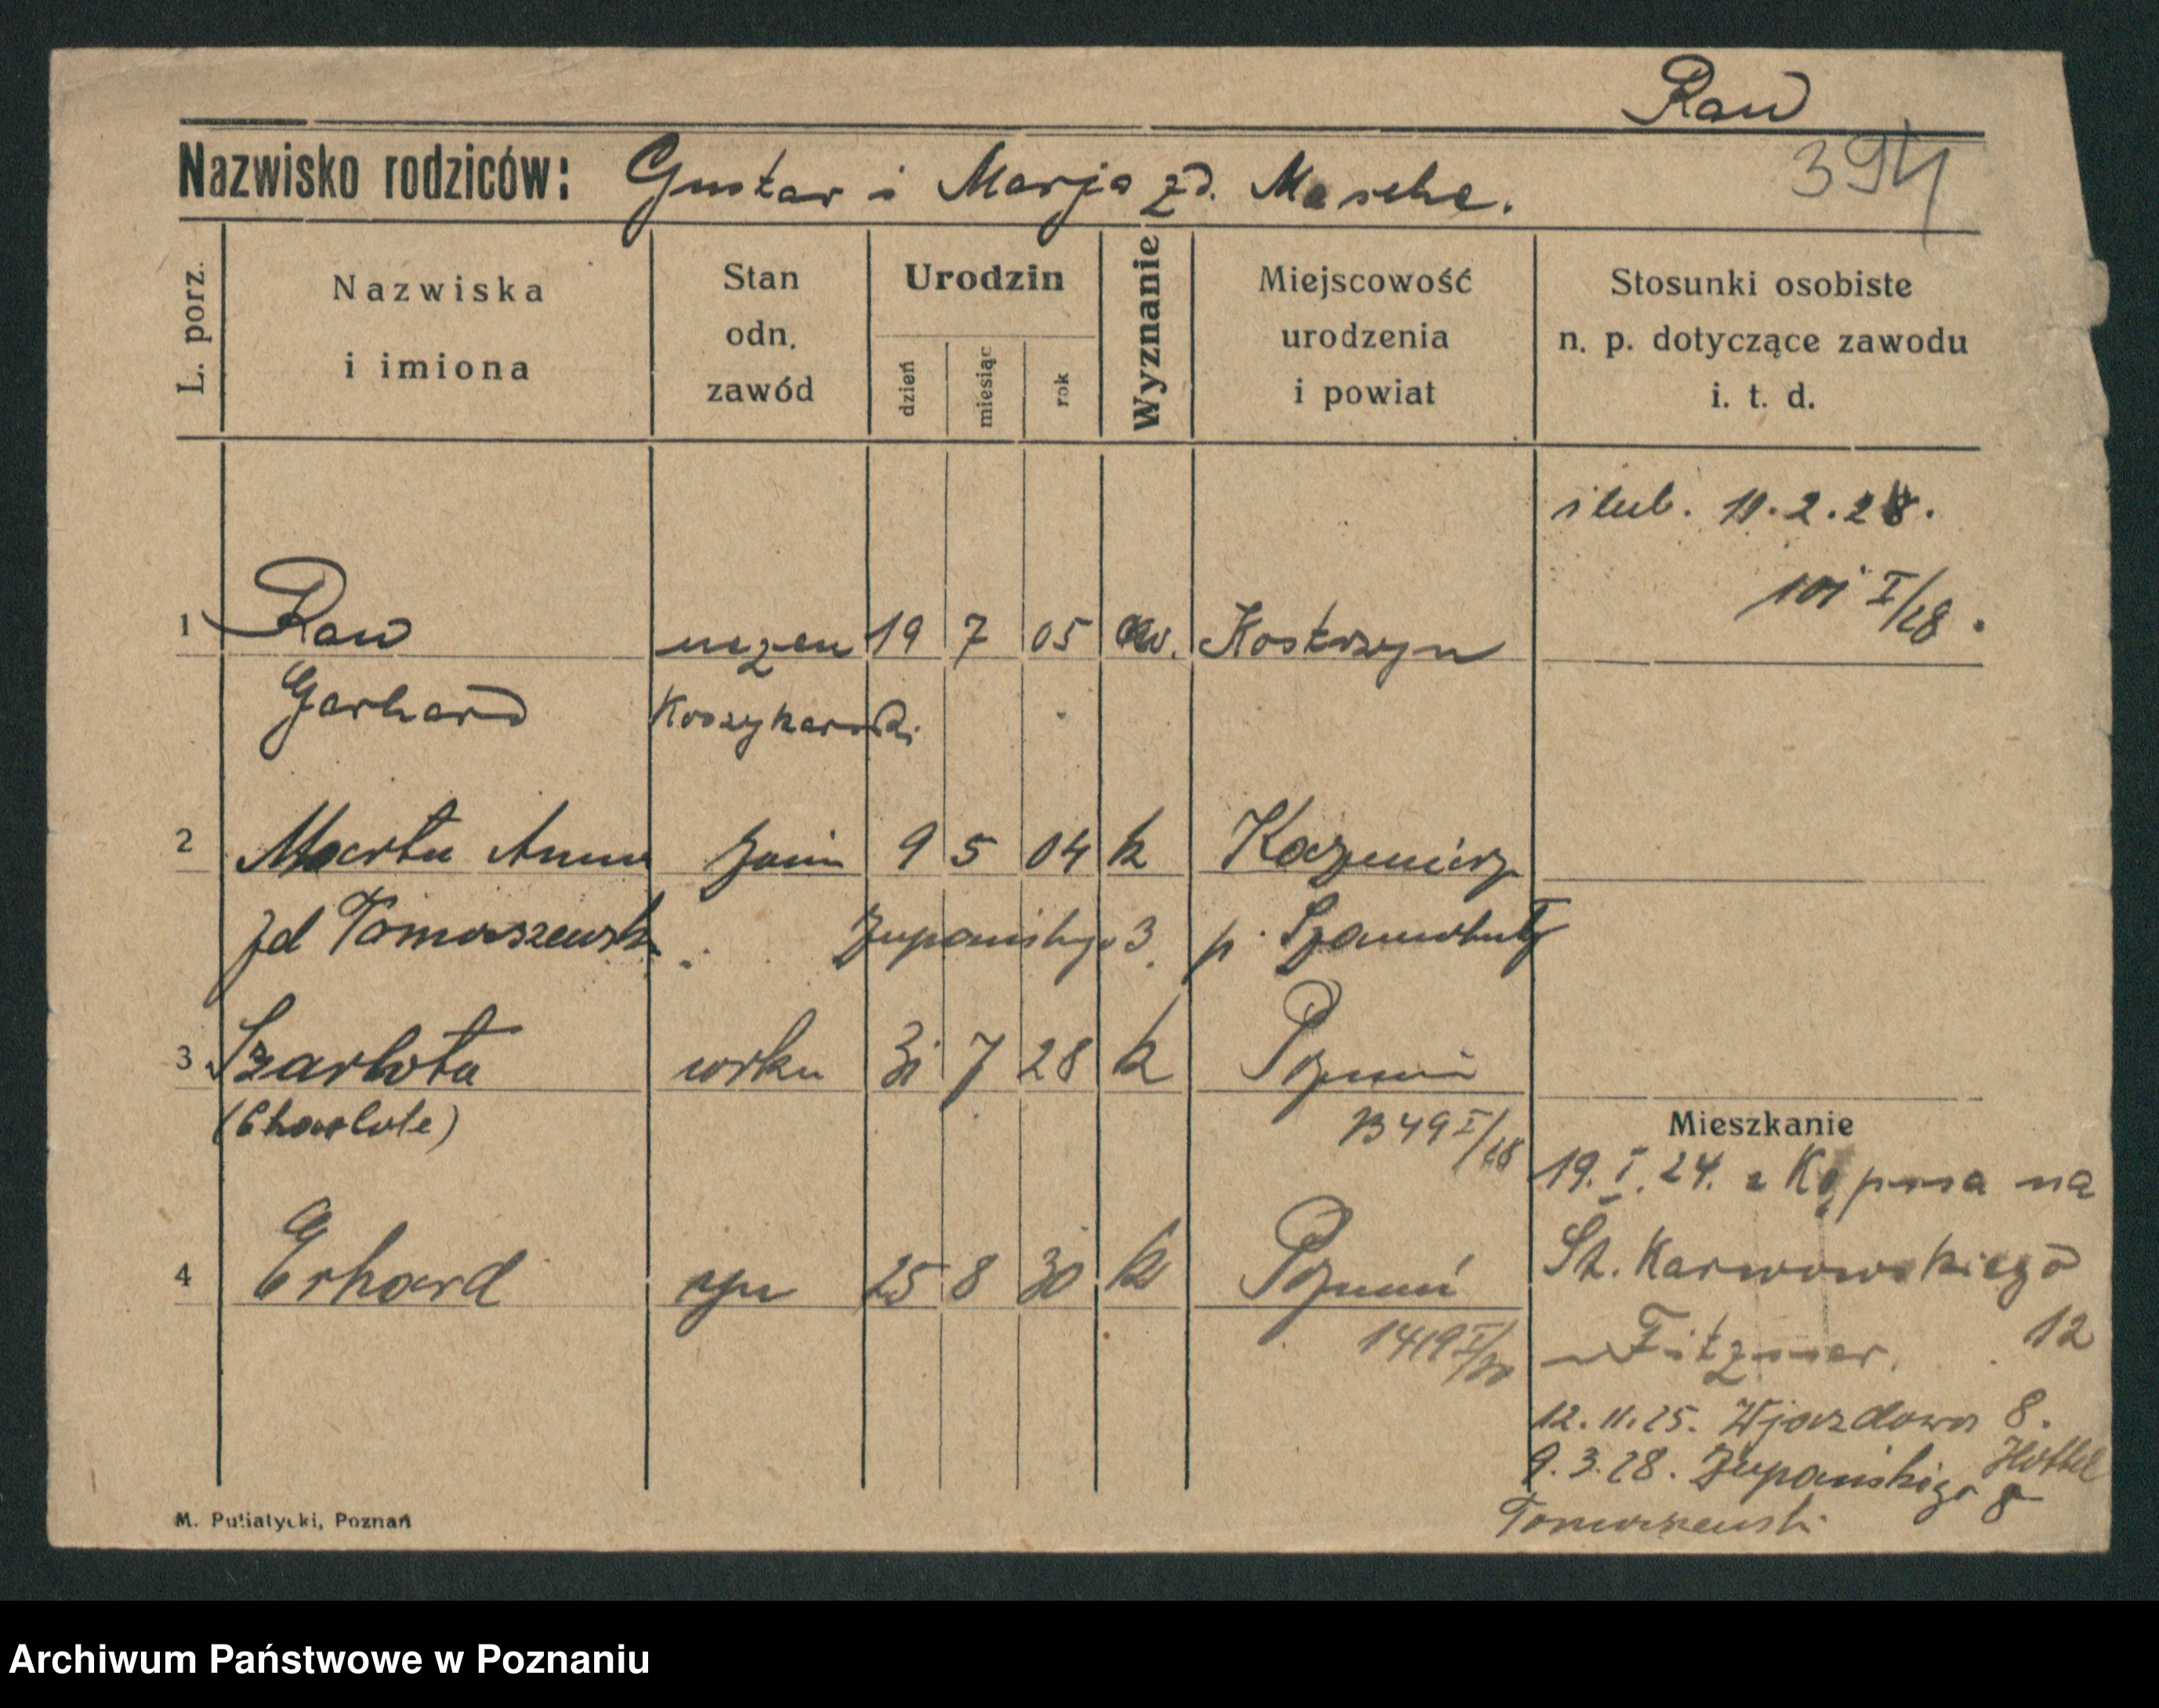 Raw
394
Nazwisko rodziców: Gustav i Marja zd. Masche.
L. porz.
Nazwiska i imiona
Stan odn. zawód
Urodzin
dzień miesiąc rok
Wyznanie
Miejscowość urodzenia i powiat
Stosunki osobiste n. p. dotyczące zawodu i. t. d.
ślub. 11.2.28.
101 I/28.
1 Raw uczeń 19 7 05 ew. Kostrzyn
Gerhard Koszykarski
2 Marta Anna żona 9 5 04 k Kazmierz
zd Tomaszewska Żupańskiego 3. p. Szamotuły
3 Szarlota córka 31 7 28 k Poznań
(Charlotte) 1349 I/28
Mieszkanie
19. I. 24. z na
St. Karwowskiego
4 Erhard syn 25 8 30 k Poznań
12
1419 I/30
12.11.25. Wjazdowa 8.
Hottel
9.3.28. Żupańskiego 8
Tomaszewski
M. Putiatycki, Poznań
Archiwum Państwowe w Poznaniu